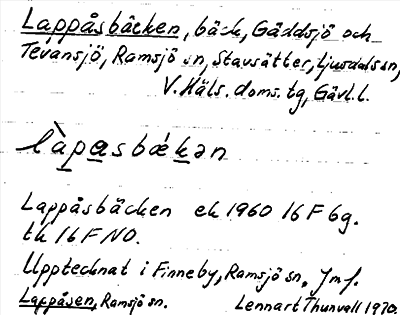 Lappåsbäcken, bäck, Gäddsjö och
Tevansjö, Ramsjö sn, Stavsätter, Ljusdals sn,
V. Häls. doms. tg, Gävl. l.
làpasbǽkən
Lappåsbäcken ek 1960 16 F 6g.
tk 16 F NO.
Upptecknat i Finneby, Ramsjö sn, Jmf.
Lappåsen, Ramsjö sn. Lennart Thunvall 1970.